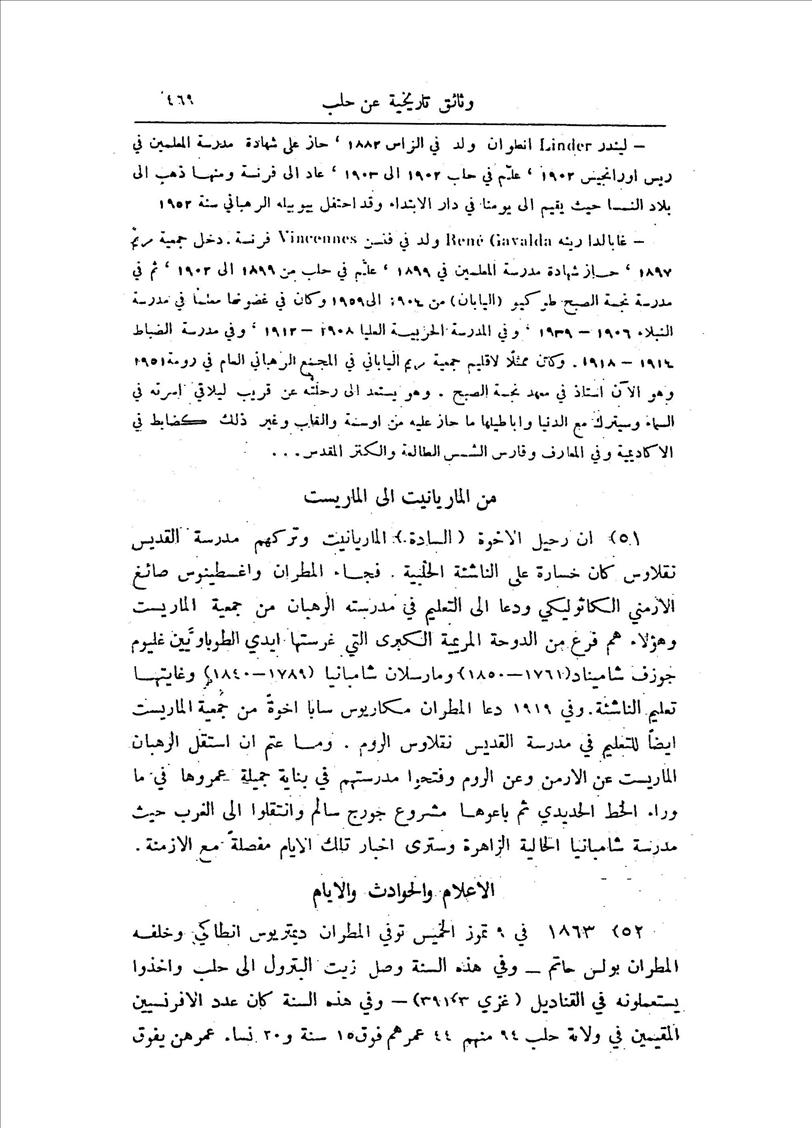 وثائق تاريخية عن حلب ٤٦٩
— ليندر Linder انطوان ولد في الزاس ١٨٨٢ ، حاز على شهادة مدرسة المعلمين في
ريس اورانجيس ١٩٠٢ ، علّم في حلب ١٩٠٢ الى ١٩٠٣ ، عاد الى فرنسة ومنها ذهب الى
بلاد النمسا حيث يقيم الى يومنا في دار الابتداء وقد احتفل بيوبيله الرهباني سنة ١٩٥٢
— غابالدا رينه René Gavalda ولد في فنسن Vincennes فرنسة . دخل جمعية مريم
١٨٩٧ ، حاز شهادة مدرسة المعلمين في ١٨٩٩ ، علّم في حلب من ١٨٩٩ الى ١٩٠٣ ، ثم في
مدرسة نجمة الصبح طوكيو (اليابان) من ١٩٠٤ الى ١٩٥٩ وكان في غضونها معلماً في مدرسة
النبلاء ١٩٠٦ – ١٩٣٩ ، وفي المدرسة الحربية العليا ١٩٠٨ – ١٩١٢ ، وفي مدرسة الضباط
١٩١٤ – ١٩١٨ . وكان ممثلًا لاقليم جمعية مريم الياباني في المجمع الرهباني العام في رومة ١٩٥١
وهو الآن استاذ في معهد نجمة الصبح . وهو يستعد الى رحلته عن قريب ليلاقي اسرته في
السماء وسيترك مع الدنيا واباطيلها ما حاز عليه من اوسمة والقاب وغير ذلك كضابط في
الاكاديمية وفي المعارف وفارس الشمس الطالعة والكنز المقدس . . .
من الماريانيت الى الماريست
٥١) ان رحيل الاخوة (السادة) الماريانيت وتركهم مدرسة القديس
نقلاوس كان خسارة على الناشئة الحلبية . فجاء المطران واغسطينوس صائغ
الارمني الكاثوليكي ودعا الى التعليم في مدرسته الرهبان من جمعية الماريست
وهؤلاء هم فرع من الدوحة المريمية الكبرى التي غرستها ايدي الطوباويَّين غليوم
جوزف شاميناد (١٧٦١–١٨٥٠) ومارسلان شامبانيا (١٧٨٩–١٨٤٠) وغايتها
تعليم الناشئة . وفي ١٩١٩ دعا المطران مكاريوس سابا اخوةً من جمعية الماريست
ايضاً للتعليم في مدرسة القديس نقلاوس الروم . وما عتم ان استقل الرهبان
الماريست عن الارمن وعن الروم وفتحوا مدرستهم في بناية جميلة عمروها في ما
وراء الخط الحديدي ثم باعوها مشروع جورج سالم وانتقلوا الى الغرب حيث
مدرسة شامبانيا الحالية الزاهرة وسترى اخبار تلك الايام مفصلةً مع الازمنة .
الاعلام والحوادث والايام
٥٢) ١٨٦٣ في ٩ تموز الخميس توفي المطران ديمتريوس انطاكي وخلفه
المطران بولس حاتم – وفي هذه السنة وصل زيت البترول الى حلب واخذوا
يستعملونه في القناديل (غزي ٣،٣٩١) – وفي هذه السنة كان عدد الافرنسيين
المقيمين في ولاية حلب ٩٤ منهم ٤٤ عمرهم فوق ١٥ سنة و٢٠ نساء عمرهن يفوق